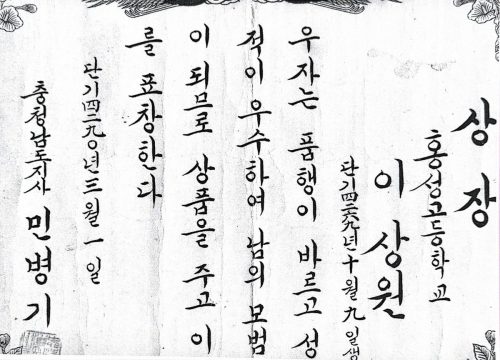 상장
홍성고등학교
이상원
단기四二六九년十월九일생
우자는 품행이 바르고 성
적이 우수하여 남의 모범
이 되므로 상품을 주고 이
를 표창한다
단기四二九〇년三월一일
충청남도지사 민병기